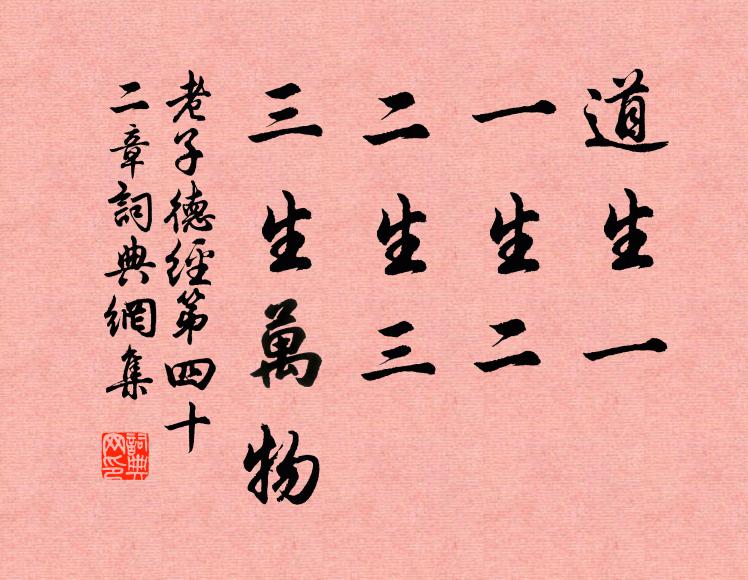 道生一
一生二
二生三
三生萬物
老子德經第四十
二章詞典網集
詞典
网印